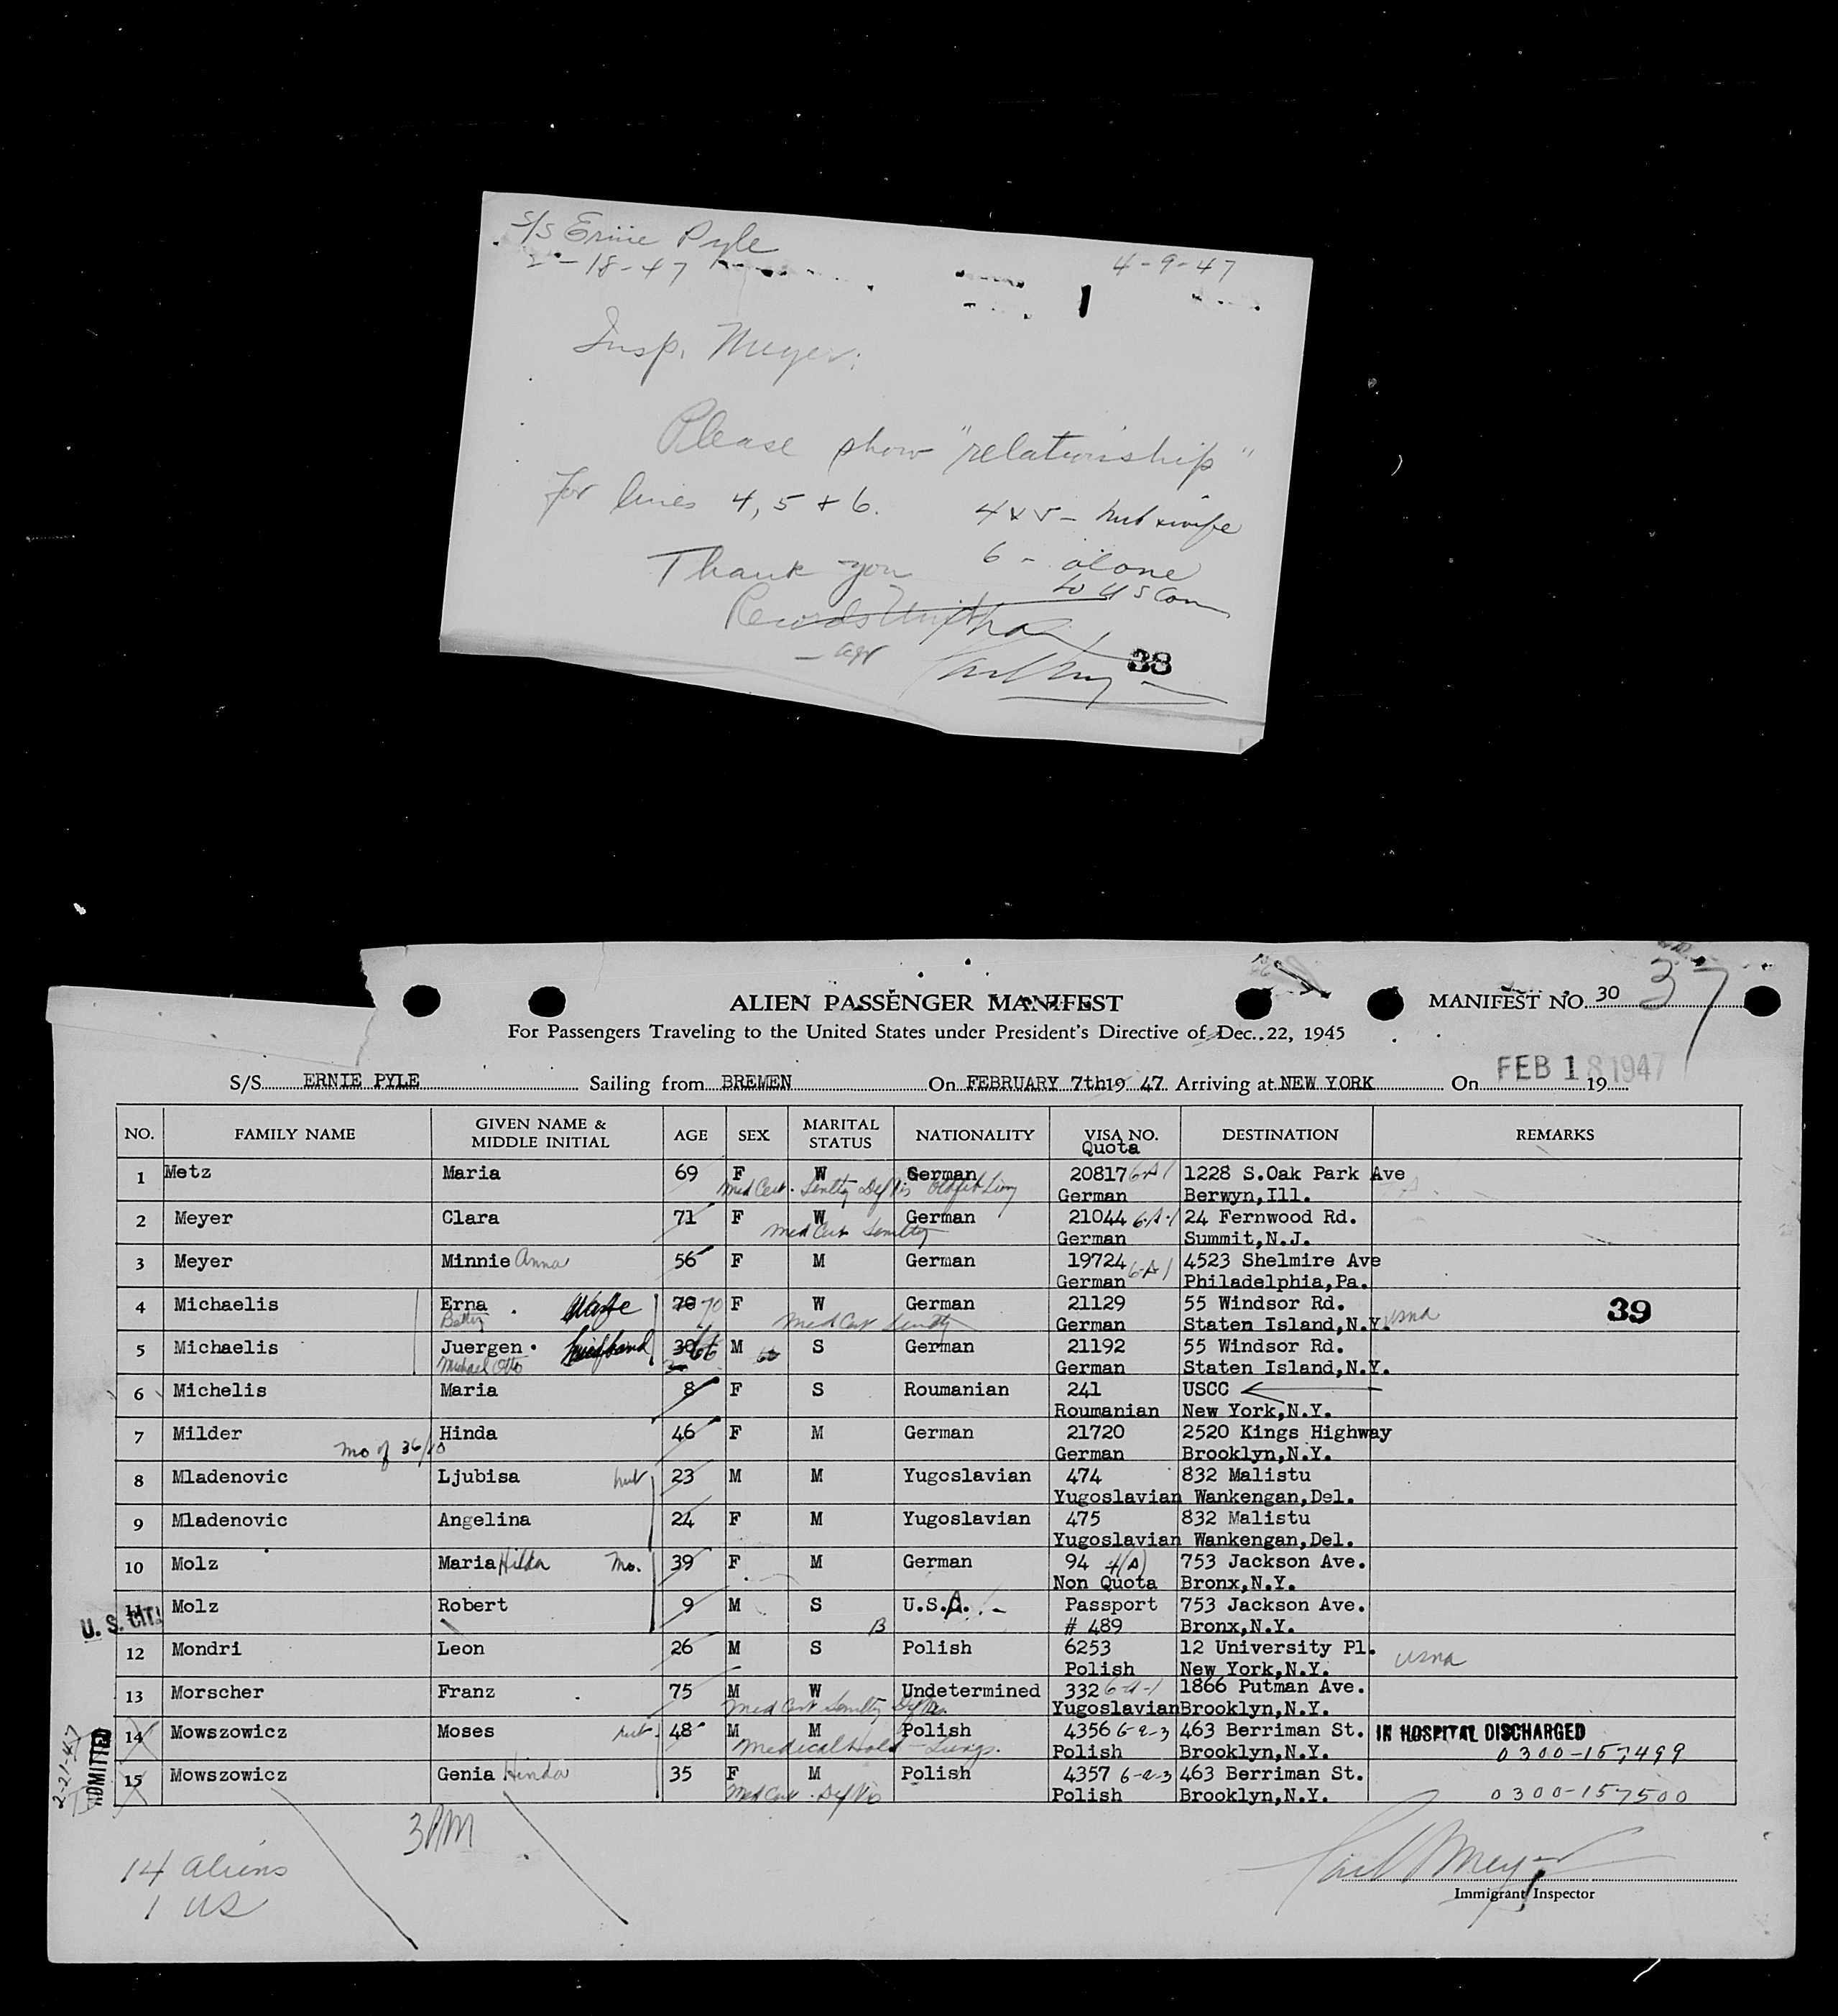 S/S Ernie Pyle
2-18-47
4-9-47
Insp. Meyer:
Please show "relationship"
for lines 4, 5 + 6.
4 x 5 - hub x wife
6 - alone
to U S Com
Thank you
Records Unit
38
ALIEN PASSENGER MANIFEST
MANIFEST NO. 30
37
For Passengers Traveling to the United States under President's Directive of Dec. 22, 1945
S/S ERNIE PYLE Sailing from BREMEN On FEBRUARY 7th 19 47 Arriving at NEW YORK On FEB 18 1947 19
NO. FAMILY NAME GIVEN NAME & MIDDLE INITIAL AGE SEX MARITAL STATUS NATIONALITY VISA NO. Quota DESTINATION REMARKS
1 Metz Maria 69 F W German 20817 6-A-1 1228 S.Oak Park Ave
Med Cert. Senility Def Vis German Berwyn,Ill.
2 Meyer Clara 71 F W German 21044 6-A-1 24 Fernwood Rd.
Med Cert Senility German Summit,N.J.
3 Meyer Minnie Anna 56 F M German 19724 6-A-1 4523 Shelmire Ave
German Philadelphia,Pa.
4 Michaelis Erna Wife 70 70 F W German 21129 55 Windsor Rd. 39
Betty Med Cert Senility German Staten Island,N.Y. usna
5 Michaelis Juergen Husband 30 66 M 66 S German 21192 55 Windsor Rd.
Michael Otto German Staten Island,N.Y.
6 Michelis Maria 8 F S Roumanian 241 USCC
Roumanian New York,N.Y.
7 Milder Hinda 46 F M German 21720 2520 Kings Highway
mo of 36/10 German Brooklyn,N.Y.
8 Mladenovic Ljubisa hub 23 M M Yugoslavian 474 832 Malistu
Yugoslavian Wankengan,Del.
9 Mladenovic Angelina 24 F M Yugoslavian 475 832 Malistu
Yugoslavian Wankengan,Del.
10 Molz Maria Hilda Mo. 39 F M German 94 4(A) 753 Jackson Ave.
Non Quota Bronx,N.Y.
11 Molz Robert 9 M S U.S.A. Passport 753 Jackson Ave.
U. S. CIT. B # 489 Bronx,N.Y.
12 Mondri Leon 26 M S Polish 6253 12 University Pl.
Polish New York,N.Y. usna
13 Morscher Franz 75 M W Undetermined 332 6-A-1 1866 Putman Ave.
Med Cert Senility Yugoslavian Brooklyn,N.Y.
14 Mowszowicz Moses hub. 48 M M Polish 4356 6-a-3 463 Berriman St. IN HOSPITAL DISCHARGED
Medical Hold - Lungs. Polish Brooklyn,N.Y. 0300-157499
15 Mowszowicz Genia Hinda 35 F M Polish 4357 6-a-3 463 Berriman St.
Med Cert. Def Vis Polish Brooklyn,N.Y. 0300-157500
2-21-47
ADMITTED
3 PM
14 aliens
1 US
Paul Meyer
Immigrant Inspector